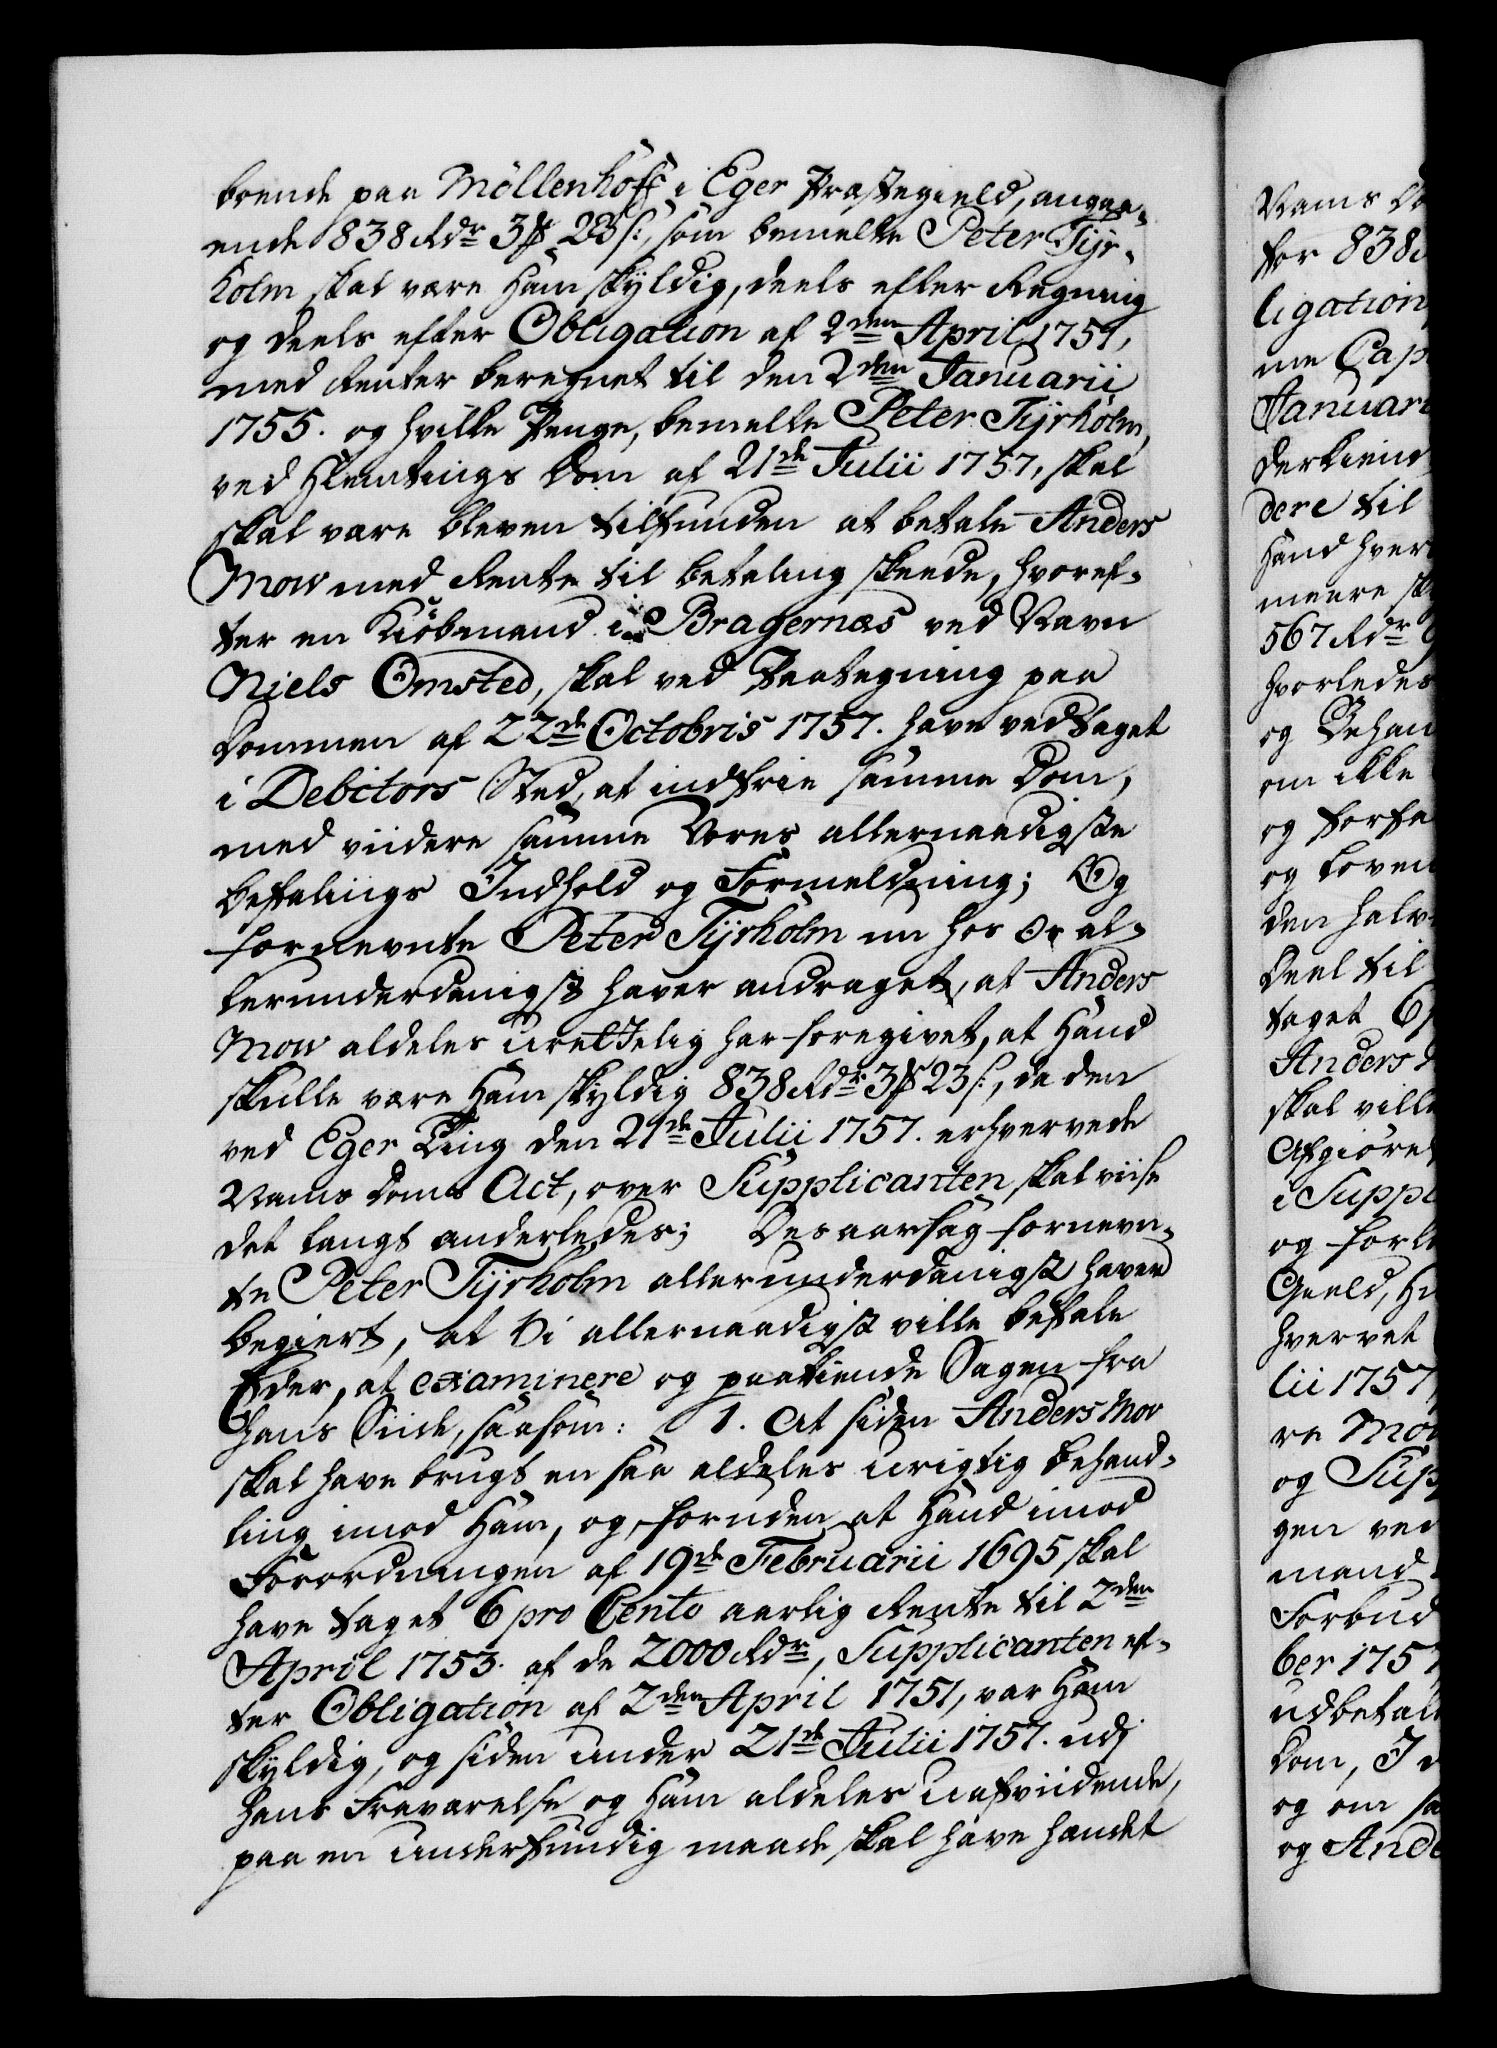 boende paa Möllenhoff i Eger Præstegield, angaa-
ende 838 Rdr 3 ß 23 s:, som bemelte Peter Tyr-
holm skal være Ham skyldig, deels efter Regning
og deels efter Obligation af 2den April 1751,
med Renter beregnet til den 2den Januarii
1755. og hvilke Penge, bemelte Peter Tyrholm,
ved Hiemtings Dom af 21de Julii 1757, skal
skal være bleven tilfunden at betale Anders
Mow med Rente til betaling skeede, hvoref-
ter en Kiöbmand i Bragernæs ved Navn
Niels Omsted, skal ved Paategning paa
Dommen af 22de Octobris 1757. have vedtaget
i Debitors Sted, at indfrie samme Dom,
med viidere samme Vores allernaadigste
befalings Indhold og Formelding; Og
fornevnte Peter Tyrholm nu hos Os al-
lerunderdanigst haver andraget, at Anders
Mow aldeles urettelig har foregivet, at Hand
skulle være Ham skyldig 838 Rdr 3 ß 23 s:, da den
ved Eger Ting den 21de Julii 1757. erhvervede
Nams Doms Act, over Supplicanten skal viise
det langt anderledes; Desaarsag fornevn-
te Peter Tyrholm allerunderdanigst haver
begiert, at Vi allernaadigst ville befale
Eder, at examinere og paakiende Sagen fra
hans Siide, saasom: 1. At siden Anders Mov
skal have brugt en saa aldeles urigtig behand-
ling imod Ham, og, foruden at Hand imod
Forordningen af 19de Februarii 1695 skal
have taget 6 pro Cento aarlig Rente til 2den
April 1753. af de 2000 Rdr, Supplicanten ef-
ter Obligation af 2den April 1751, var Ham
skyldig, og siden under 21de Julii 1757. udj
hans Fraværelse og Ham aldeles uafviidende,
paa en underfundig maade skal have handet
Nams Do
for 838
ligation
me Cap
Januari
derkiend
dere til
Hand hver
meere sk
567 Rdr
hvorledes
og Behan
om ikke
og forfa
og loven
den halv
Deel til
taget 6 p
Anders
skal ville
Afgiöre
i Suppl
og forl
Gield, H
hvervet
lii 1757
re Mov
og Sup
gen ved
mand
Forbud
ber 1757
udbetal
Dom, I
og om sa
og Ande